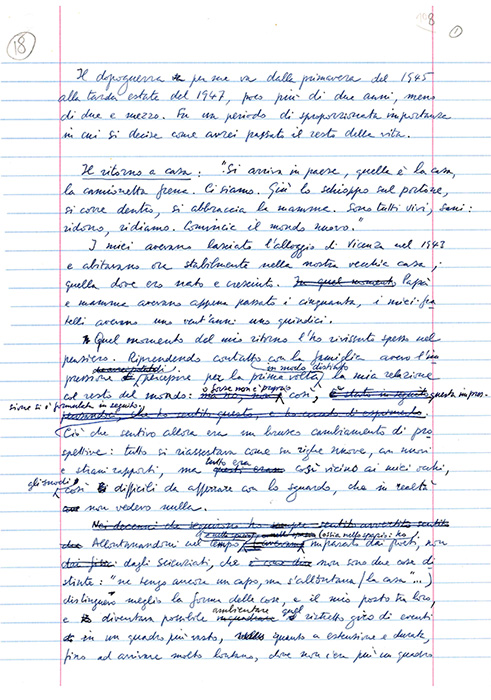 18
108
1
Il dopoguerra per me va dalla primavera del 1945
alla tarda estate del 1947, poco più di due anni, meno
di due e mezzo. Fu un periodo di sproporzionata importanza
in cui si decise come avrei passato il resto della vita.
Il ritorno a casa: "Si arriva in paese, quella è la casa,
la camionetta frena. Ci siamo. Giù lo schioppo sul portone,
si corre dentro, si abbraccia la mamma. Sono tutti vivi, sani:
ridono, ridiamo. Comincia il mondo nuovo."
I miei avevano lasciato l'alloggio di Vicenza nel 1943
e abitavano ora stabilmente nella nostra vecchia casa,
quella dove ero nato e cresciuto. In quel momento Papà
e mamma avevano appena passato i cinquanta, i miei fra-
telli avevano uno vent'anni uno quindici.
Quel momento del mio ritorno l'ho rivissuto spesso nel
pensiero. Riprendendo contatto con la famiglia avevo l'im
in modo distinto
pressione di percepire per la prima volta la mia relazione
o forse non è proprio
col resto del mondo: ma no, non così, è stato in seguito questa impres-
sione si è formulata in seguito,
Ciò che sentivo allora era un brusco cambiamento di pro
spettive: tutto si riassestava come su righe nuove, in nuovi
tutto era
e strani rapporti, ma questi erano così vicino ai miei occhi,
gli snodi
così difficili da afferrare con lo sguardo, che in realtà
non vedevo nulla.
Nei decenni che seguirono ho sempre sentito
(e nello spazio (ossia nello spazio: ho
Allontanandomi nel tempo imparato dai poeti, non
dai fisici dagli scienziati, che non sono due cose di
stinte: "ne tengo ancora un capo, ma s'allontana / la casa"...)
distinguevo meglio la forma delle cose, e il mio posto tra loro,
ambientare quel
e diventava possibile ristretto giro di eventi
in un quadro più vasto, quanto a estensione e durata,
fino ad arrivare molto lontano, dove non c'era più un quadro